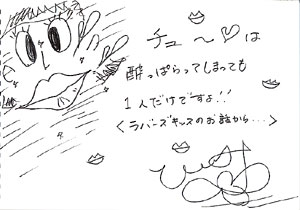 チュ〜♡は
酔っぱらってしまっても
1人だけですよ!!
<ラバーズキッスのお話から...>